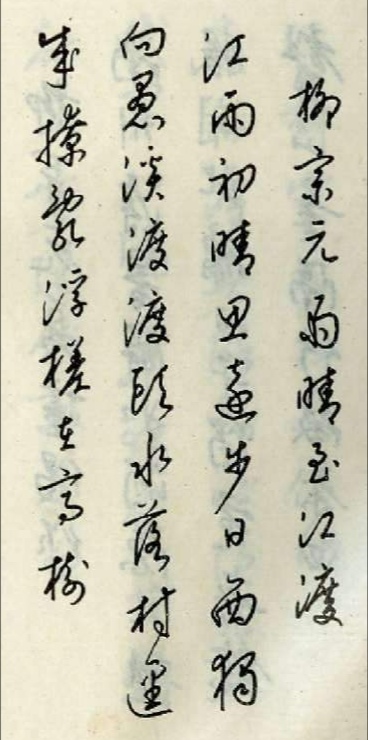 柳宗元雨晴至江渡
江雨初晴思远步日西独
向愚溪渡渡头水落村迳
成撩乱浮槎在高树